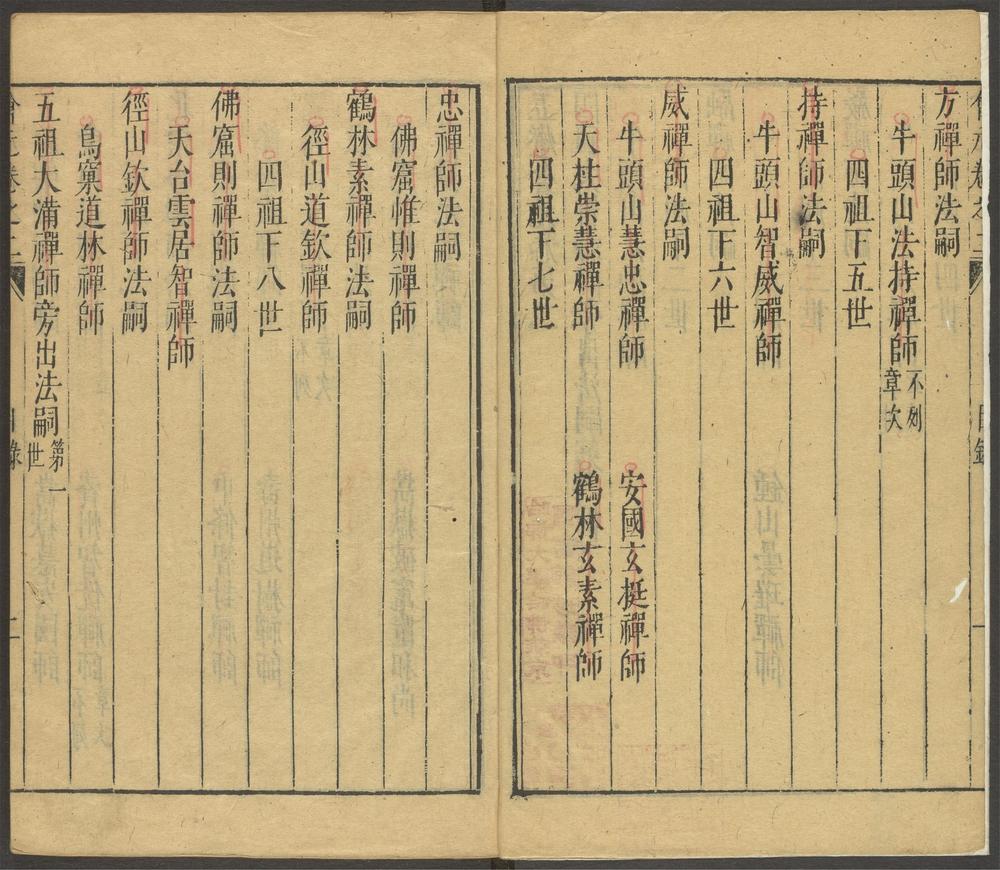 方禪師法嗣
牛頭山法持禪師 不列章次
四祖下五世
持禪師法嗣
牛頭山智威禪師
四祖下六世
威禪師法嗣
牛頭山慧忠禪師 安國玄挺禪師
天柱崇慧禪師 鶴林玄素禪師
四祖下七世
忠禪師法嗣
佛窟惟則禪師
鶴林素禪師法嗣
徑山道欽禪師
四祖下八世
佛窟則禪師法嗣
天台雲居智禪師
徑山欽禪師法嗣
鳥窠道林禪師
五祖大滿禪師旁出法嗣 第一世